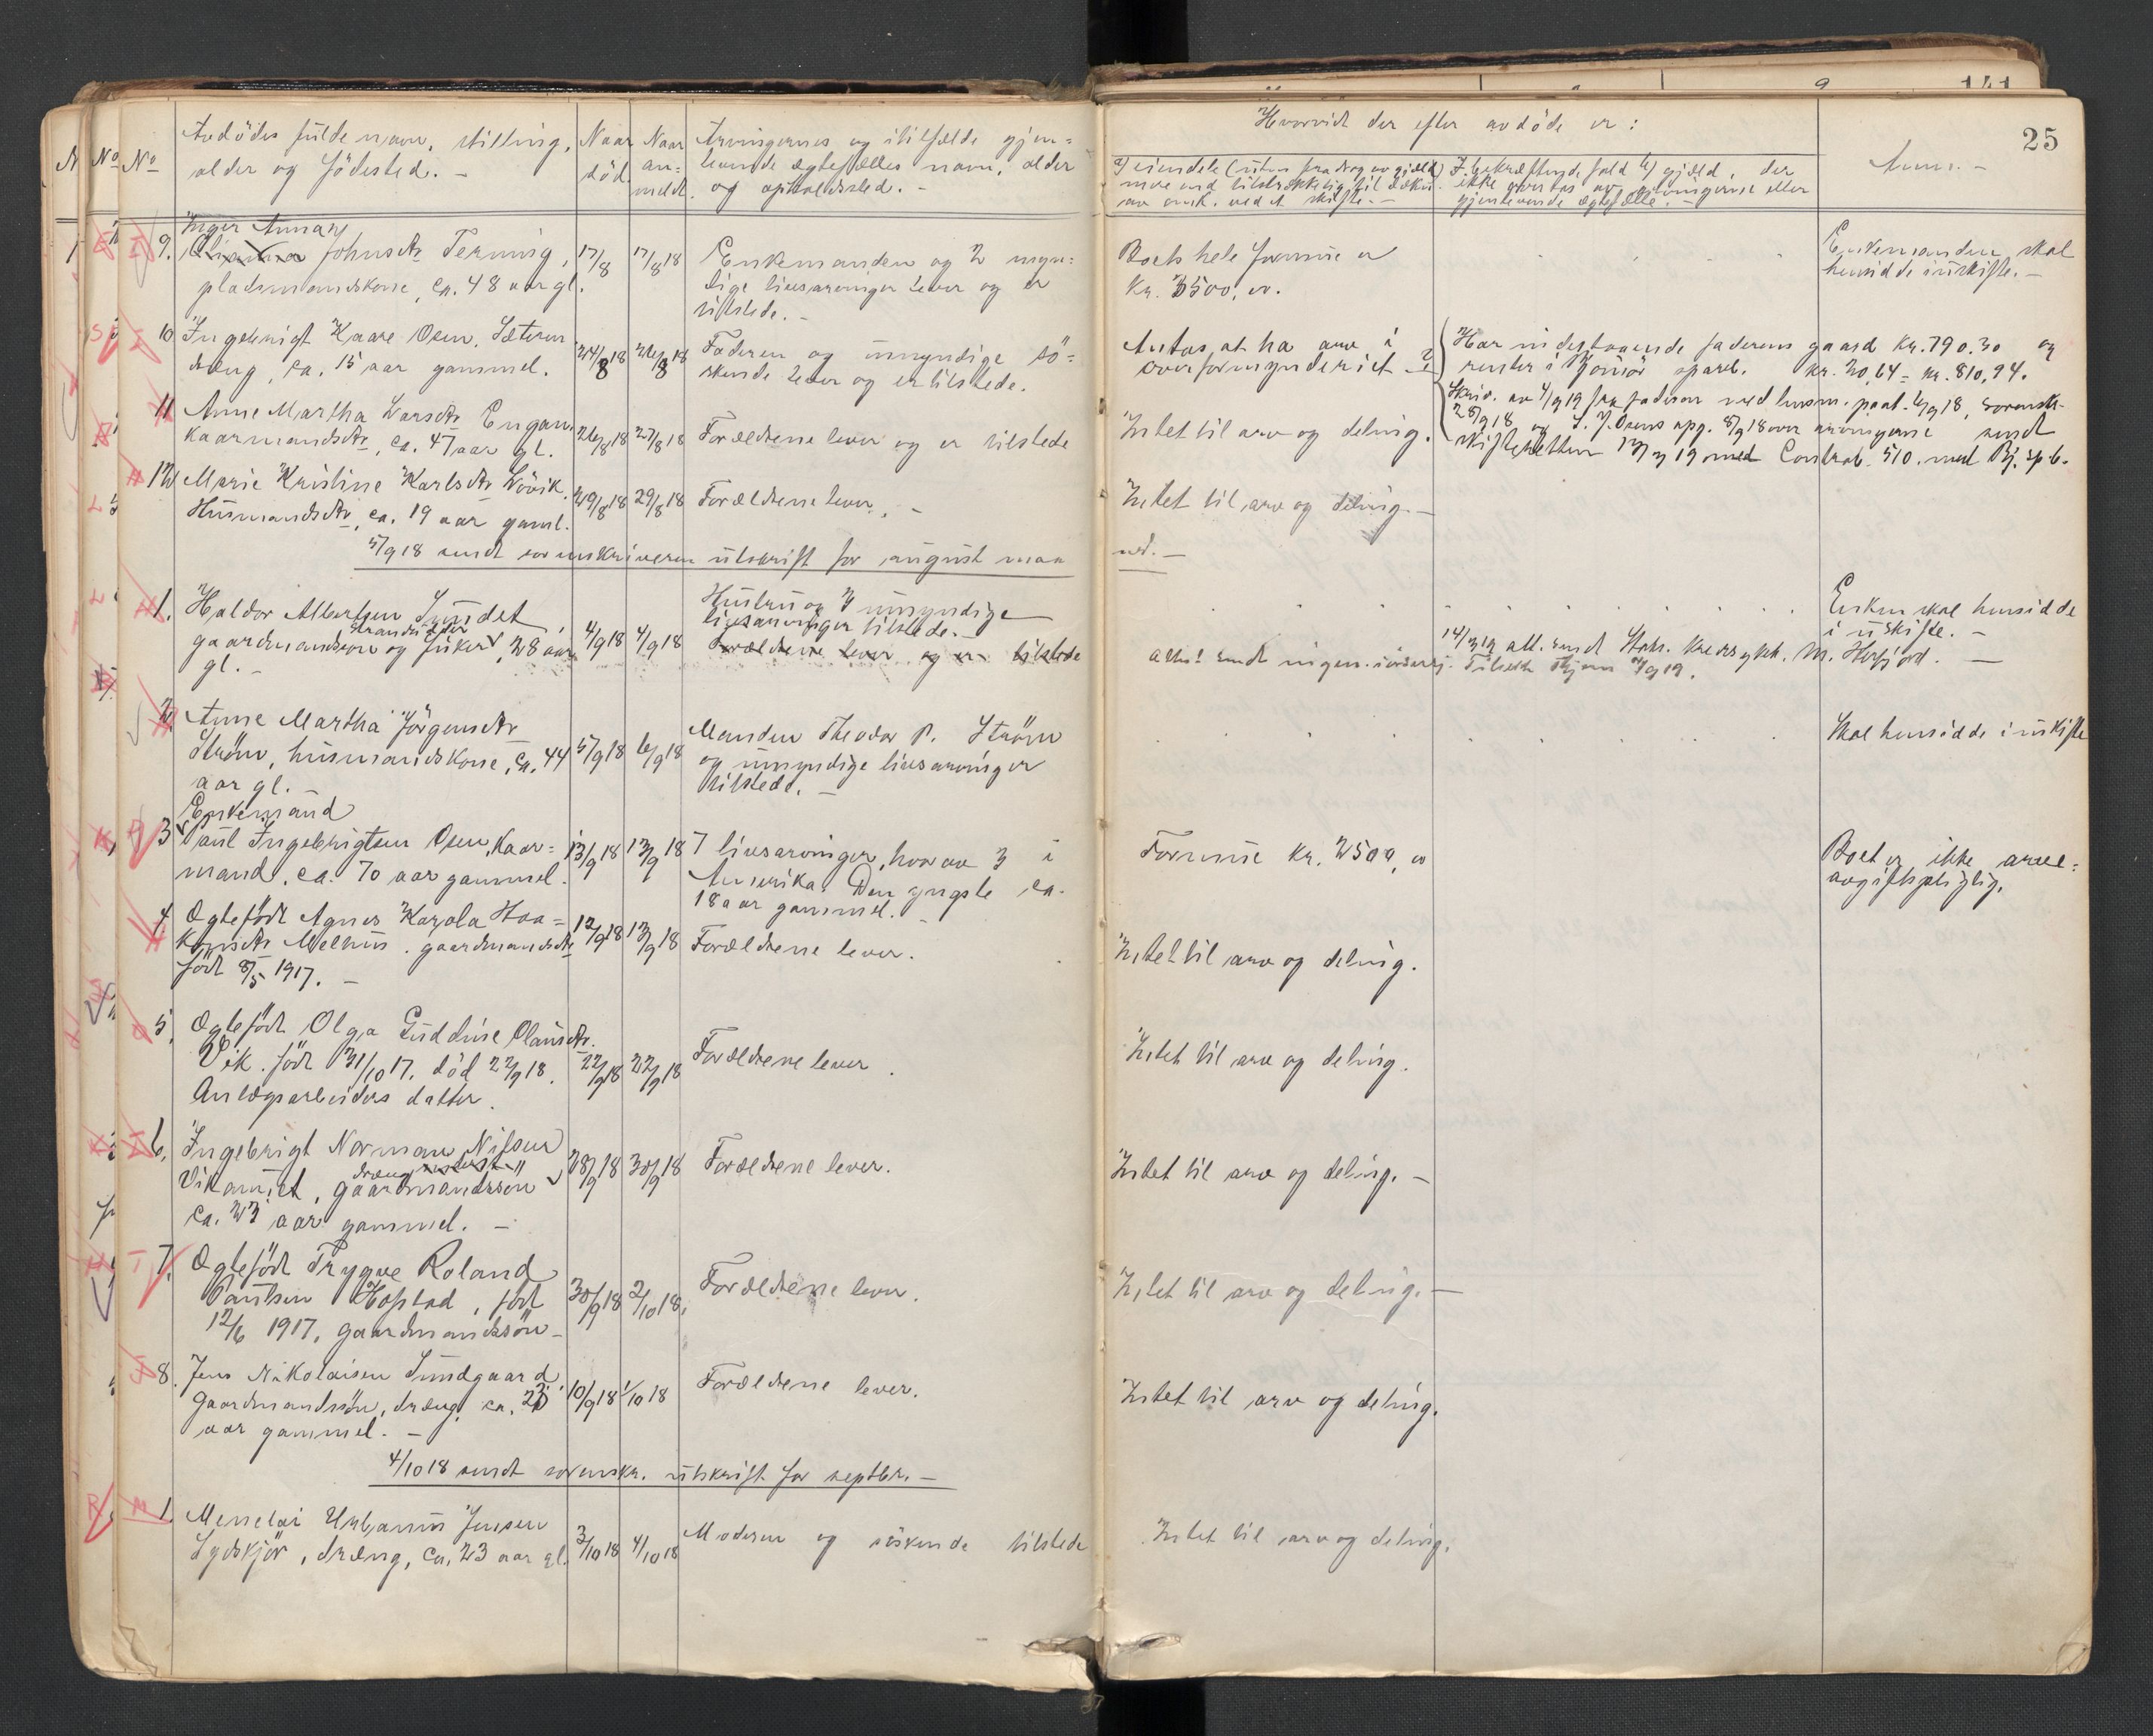 25
No
Avdödes fulde navn, stilling,
alder og födested. -
Naar
död.
Naar
an-
meldt.
Arvingernes og i tilfælde gjen-
levende ægtefælles navn, alder
og opholdssted. -
Hvorvidt der efter avdöde er :
a) eiendele (uten fradrag av gjæld)
mere end tilstrækkelig til dækn.
av omk. ved et skifte. -
I bekræftende fald b) gjæld, der
ikke overtas av arvingerne eller
gjenlevende ægtefælle. -
Anm. -
Inger Anna
9. Johnsdtr Terning,
pladsmandskone, ca. 48 aar gl.
17/8
17/8 18
Enkemanden og 2 umyn-
dige livsarvinger lever og er
tilstede. -
Boets hele formue er
Kr. 3500, oo.
Enkemanden skal
hensidde i uskifte. -
10 Ingebrigt Kaare Osen, Sæteren
dreng, ca. 15 aar gammel.
24/8 18
26/8 18
Faderen og umyndige sö-
skende lever og er tilstede.
Antas at ha arv i
overformynderiet -
Har indestaaende faderens gaard kr. 790.30 og
renter i Björnör spareb. kr. 20,64 = kr. 810,94.
Skriv. av 4/9 19 fra faderen med lensm. paat. 6/9 18, sorenskr.
28/9 18 og opg. 8/9 18 over arvingerne sendt
skifteretten 13/3 19 med Contrab. 510. med Bj. spb.
11 Anne Martha Larsdtr Engan,
kaarmandsdtr, ca. 47 aar gl.
26/8 18
27/8 18
Forældrene lever og er tilstede
Intet til arv og deling.
12 Marie Kristine Karlsdtr Lövik.
Husmandsdtr, ca. 19 aar gaml.
29/8 18
29/8 18
Forældrene lever. -
Intet til arv og deling. -
5/9 18 sendt sorenskriveren utskrift for august maa
ned. -
1. Haldor Albertsen Sundet,
strandsitter
gaardmandssön og fisker, 28 aar
gl. -
4/9 18
4/9 18
Hustru og 3 umyndige
livsarvinger tilstede. -
Forældrene lever og er tilstede
Enken skal hensidde
i uskifte. -
14/3 19 att. sendt Stoks. kredssykek. M. Herfjord. -
2. Anne Martha Jörgensdtr
Ström, husmandskone, ca. 44
aar gl. -
5/9 18
6/9 18
Manden Theodor P. Ström
og umyndige livsarvinger
tilstede. -
Skal hensidde i uskifte
Enkemand
3 Paul Ingebrigtsen Osen, kaar-
mand, ca. 70 aar gammel.
13/9 18
13/9 18
7 livsarvinger, hvorav 3 i
Amerika. Den yngste ca.
18 aar gammel. -
Formue kr. 2500, oo
Boet er ikke arve-
avgiftspligtig.
4. Egtefödt Agnes Karola Haa-
konsdtr Melhus. gaardmandsdtr
födt 8/5 1917. -
12/9 18
13/9 18
Forældrene lever.
Intet til arv og deling.
5, Egtefödt Olga Guddine Olausdtr.
Vik. födt 31/10 17. död 22/9 18.
Anlægsarbeiders datter.
22/9 18
22/9 18
Forældrene lever.
Intet til arv og deling.
6, Ingebrigt Norman Nilsen
dreng
Vikamiet, gaardmandssön
ca. 23 aar gammel. -
28/9 18
30/9 18
Forældrene lever.
Intet til arv og deling. -
7, Egtefödt Trygve Roland
Paulsen Hopstad, födt
12/6 1917, gaardmandssön -
30/9 18
2/10 18,
Forældrene lever.
Intet til arv og deling. -
8. Jens Nikolaisen Sundgaard,
gaardmandssön, dreng, ca. 23
aar gammel. -
10/9 18
1/10 18
Forældrene lever.
Intet til arv og deling.
4/10 18 sendt sorenskr. utskrift for septbr. -
1. Menelai Urbanus Jensen
Sydskjör, dreng, ca. 23 aar gl.
3/10 18
4/10 18
Moderen og söskende tilstede
Intet til arv og deling.